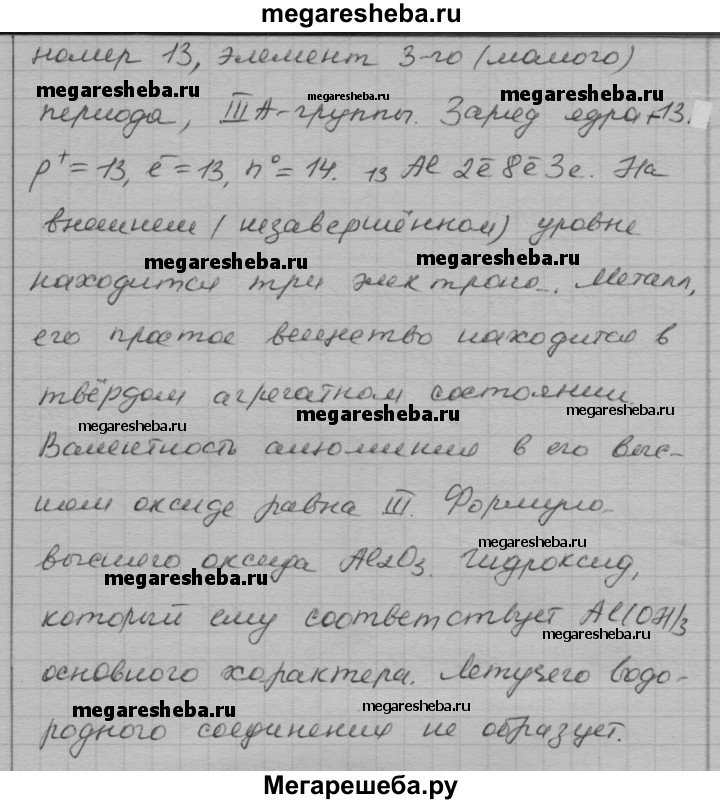 megaresheba.ru
номер 13, элемент 3-го (малого)
megaresheba.ru megaresheba.ru
периода, IIIA-группы. Заряд ядра +13.
megaresheba.ru
p⁺ = 13, e̅ = 13, n⁰ = 14. ₁₃Al 2e̅ 8e̅ 3e. На
внешнем (незавершённом) уровне
megaresheba.ru megaresheba.ru
находится три электрона. Металл,
megaresheba.ru
его простое вещество находится в
твёрдом агрегатном состоянии.
megaresheba.ru megaresheba.ru
Валентность алюминия в его выс-
шем оксиде равна III. Формула
megaresheba.ru
высшего оксида Al₂O₃. Гидроксид,
megaresheba.ru
который ему соответствует Al(OH)₃
megaresheba.ru
основного характера. Летучего водо-
megaresheba.ru megaresheba.ru
родного соединения не образует.
Мегарешеба.ру